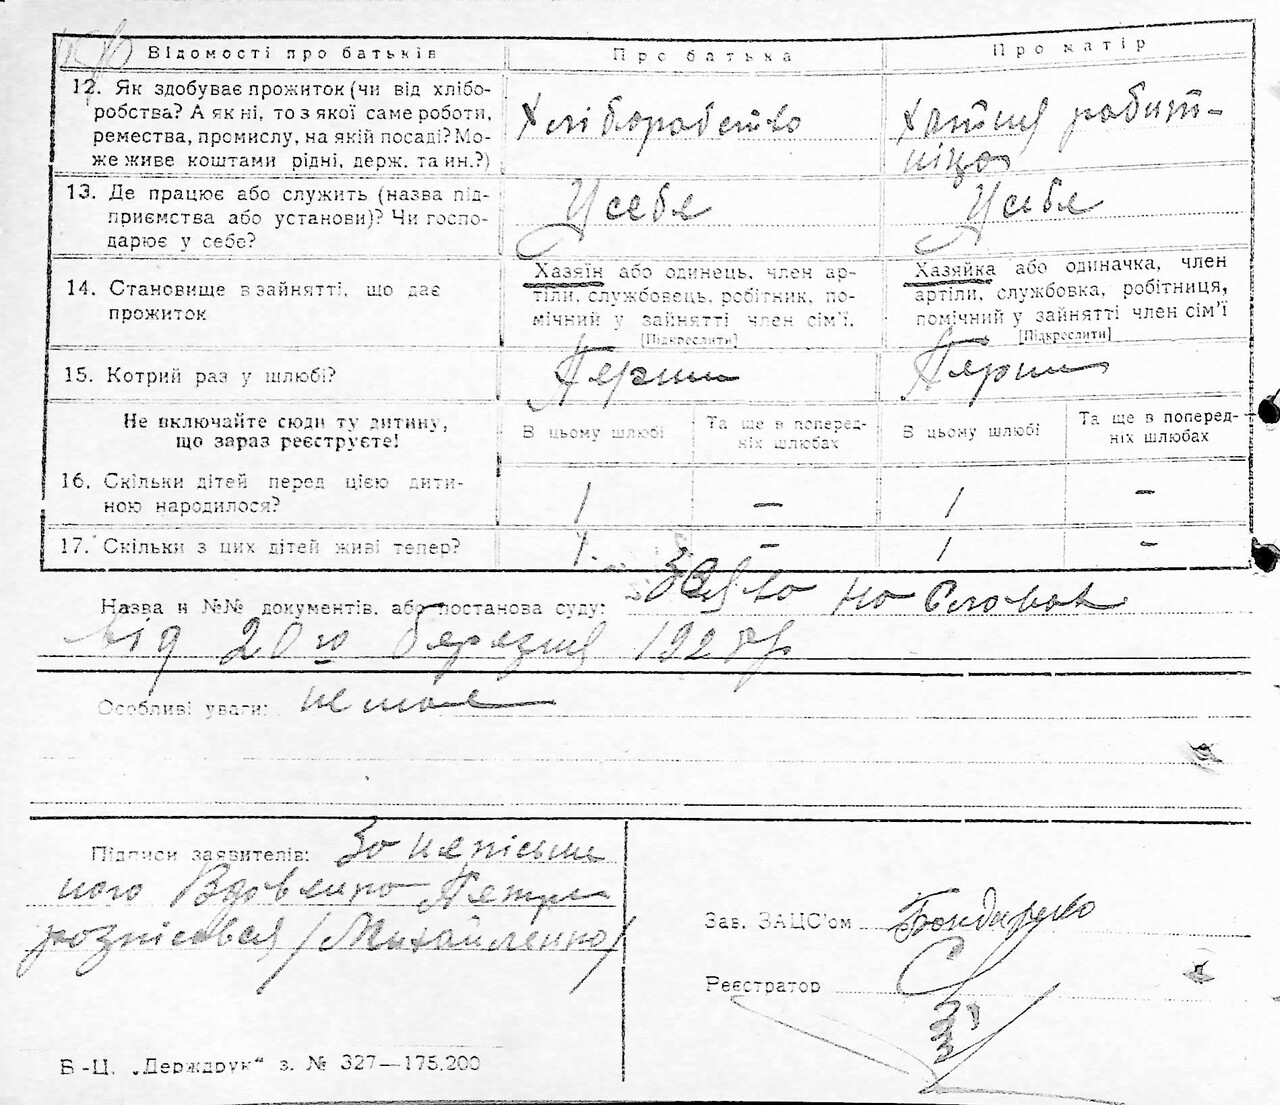 Відомості про батьків Про батька Про матір
12. Як здобуває прожиток (чи від хлібо-
робства? А як ні, то з якої саме роботи,
ремества, промислу, на якій посаді? Мо-
же живе коштами рідні, держ. та ин.?)
Хліборобство
Хатня робіт-
ніця
13. Де працює або служить (назва під-
приємства або установи)? Чи госпо-
дарює у себе?
У себе
У себе
14. Становище в зайнятті, що дає
прожиток
Хазяїн або одинець, член ар-
тіли, службовець, робітник, по-
мічний у зайнятті член сім'ї.
[Підкреслити]
Хазяйка або одиначка, член
артіли, службовка, робітниця,
помічний у зайнятті член сім'ї
[Підкреслити]
15. Котрий раз у шлюбі? Перший Перший
Не включайте сюди ту дитину,
що зараз реєструєте!
В цьому шлюбі
Та ще в поперед-
ніх шлюбах
В цьому шлюбі
Та ще в поперед-
ніх шлюбах
16. Скільки дітей перед цією дити-
ною народилося?
1 – 1 –
17. Скільки з цих дітей живі тепер? 1. – 1 –
Назва й №№ документів, або постанова суду:
від 20го березня
Особливі уваги: немає
Підписи заявителів: За неписьмен
ного Вдовенко Петра
розписався /Михайленко/
Зав. ЗАЦС'ом Бондаренко
Реєстратор
Б-Ц. „Держдрук“ з. № 327—175.200